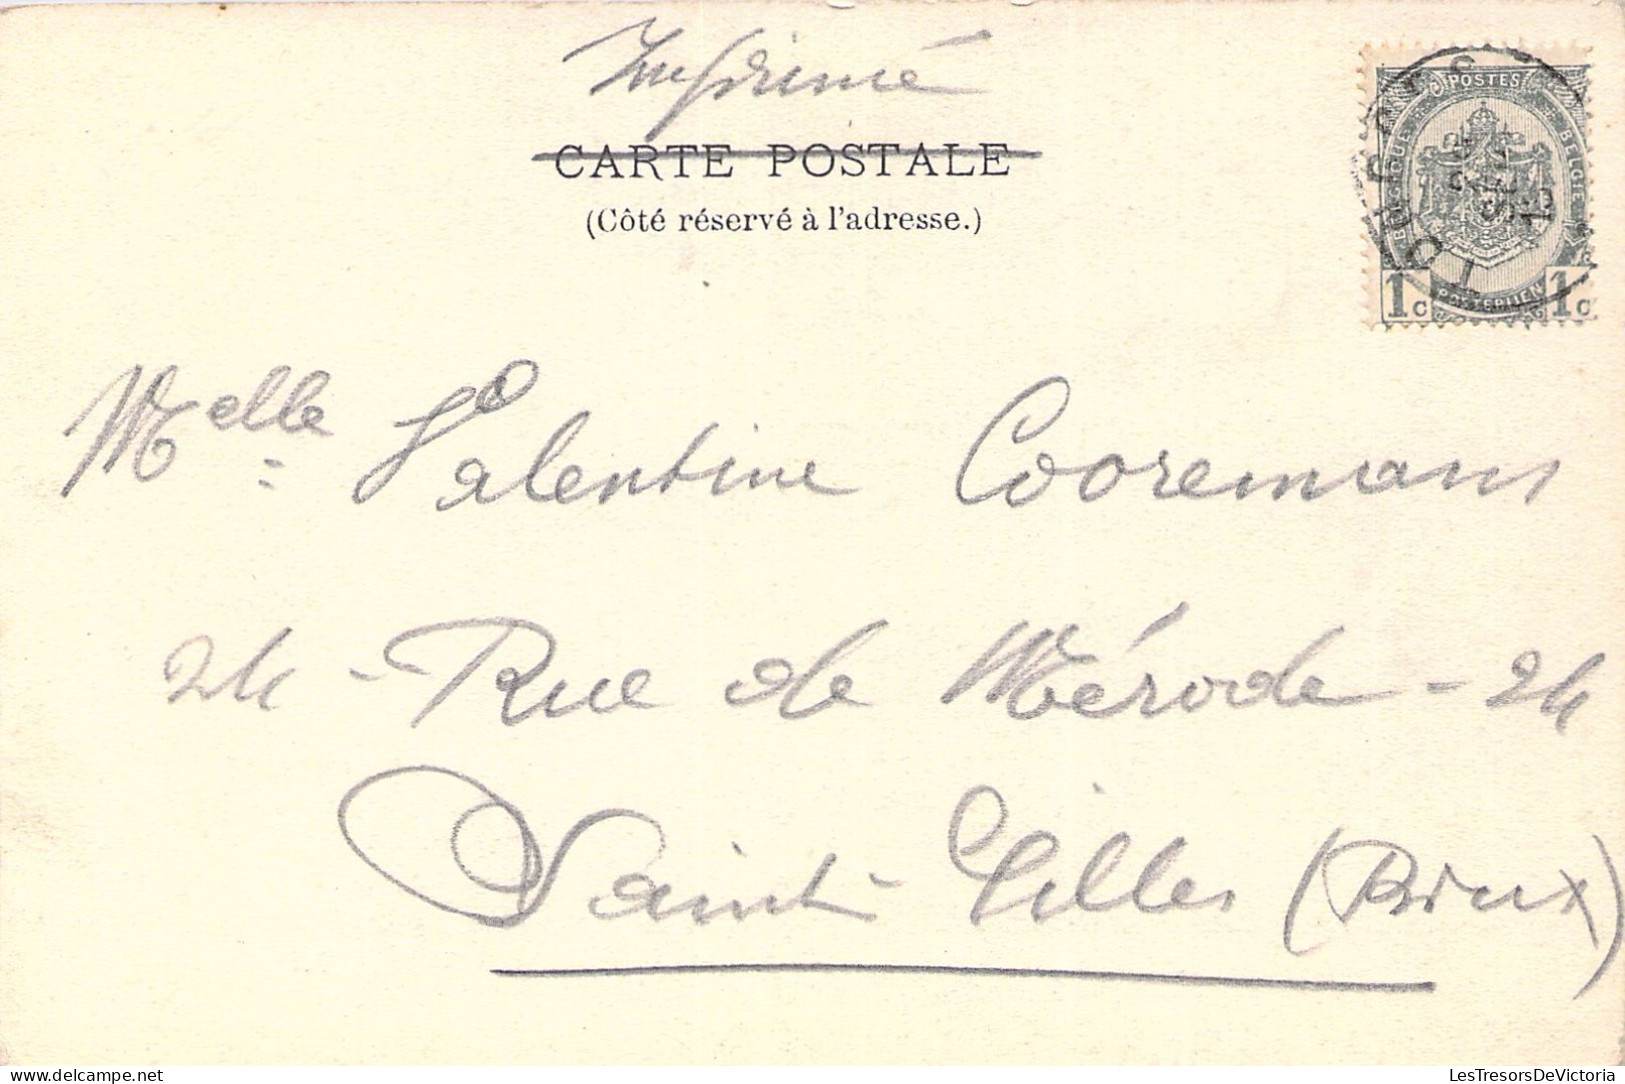 Imprimé
CARTE POSTALE
(Côté réservé à l'adresse.)
POSTES
BELGIQUE BELGIE
POSTERIJEN
1c 1c
Melle Valentine Cooremans
24 - Rue de Mérode - 24
Saint-Gilles (Brux)
delcampe.net
LesTresorsDeVictoria